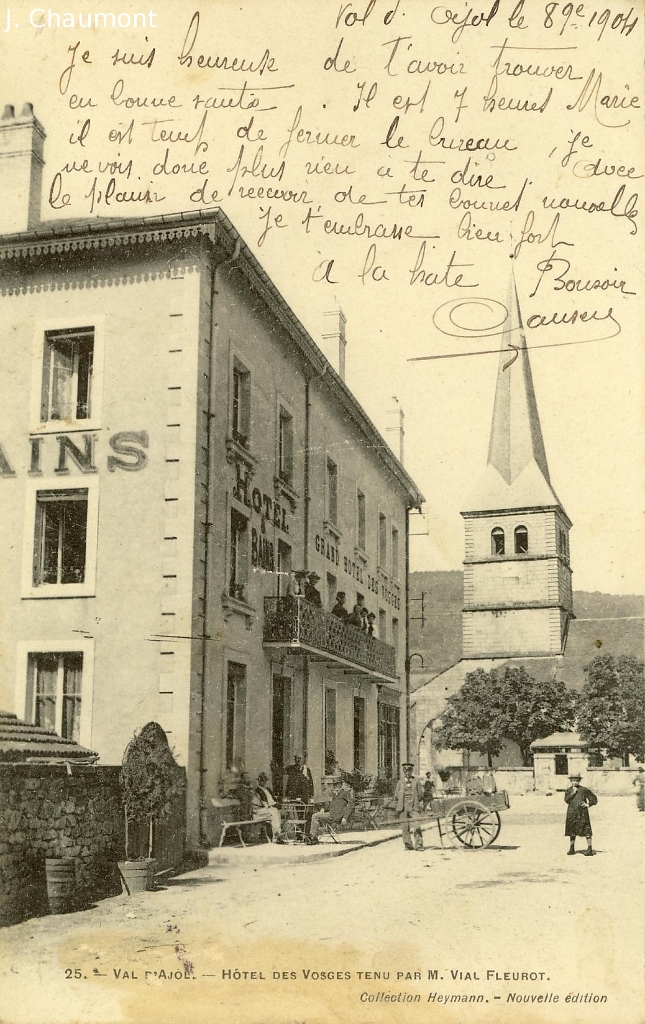 J. Chaumont
Val d'Ajol le 1904
Je suis heureuse de t'avoir trouver
en bonne santé. Il est 7 heures Marie
il est temps de fermer le bureau, je
ne vois donc plus rien a te dire. avec
le plaisir de recevoir de tes bonnes nouvelles
je t'embrasse bien fort
à la hate Bonsoir
AINS
BAINS
HOTEL
GRAND HOTEL DES VOSGES
25. - VAL D'AJOL. - HÔTEL DES VOSGES TENU PAR M. VIAL FLEUROT.
Collection Heymann. - Nouvelle édition